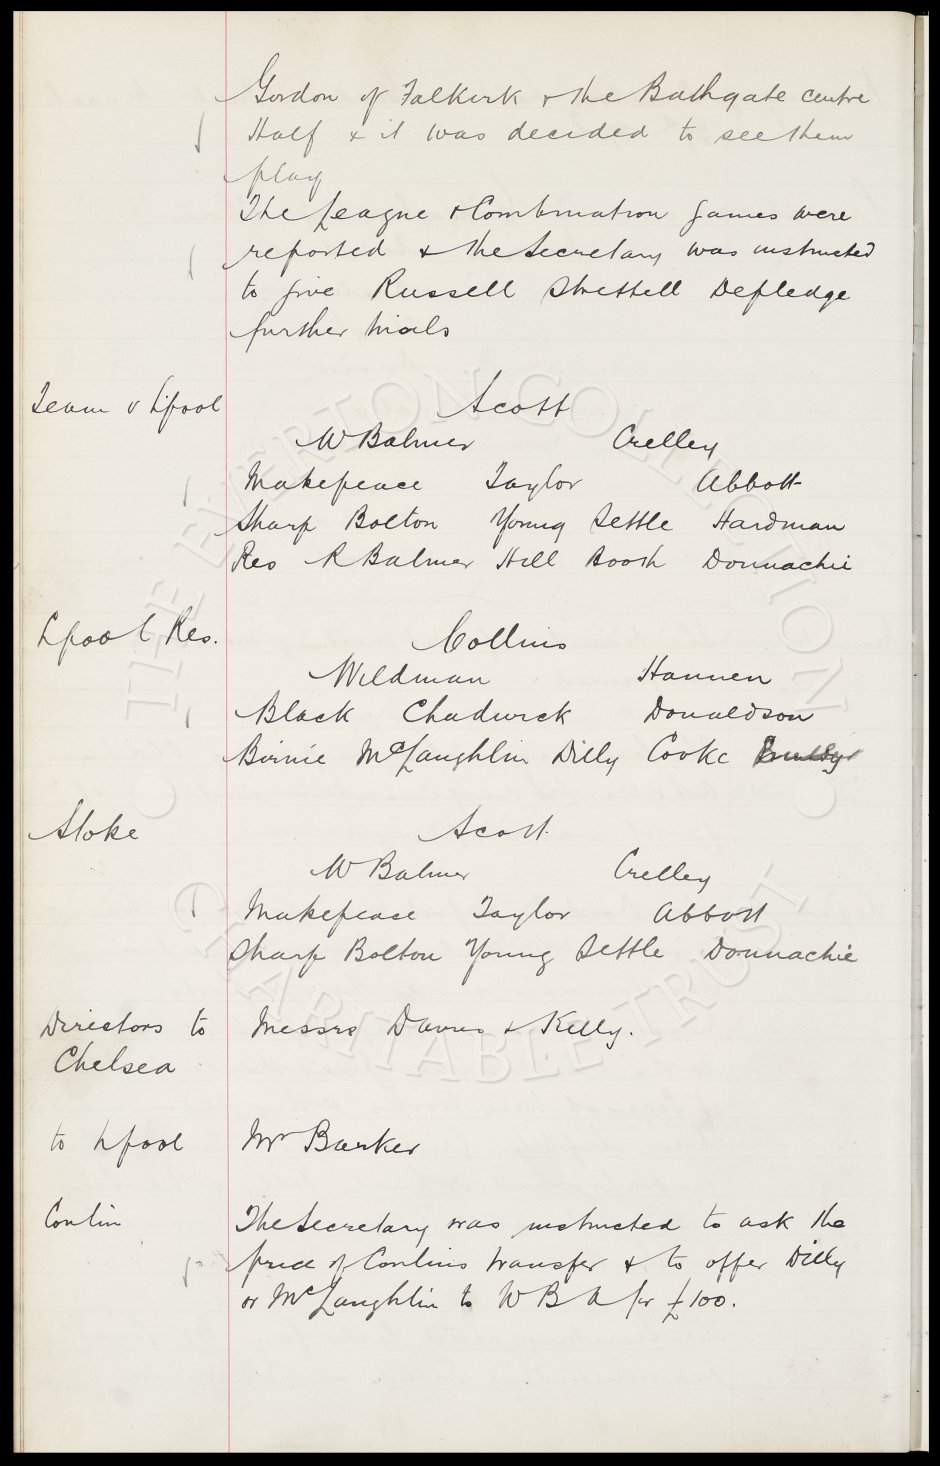 Gordon of Falkirk & the Bathgate centre
Half & it was decided to see them
play
The League & Combination games were
reported & the Secretary was instructed
to give Russell Strettell Depledge
further trials
Team v L'pool
Scott
W Balmer Crelley
Makepeace Taylor Abbott
Sharp Bolton Young Settle Hardman
Res R Balmer Hill Booth Donnachie
Lpool Res.
Collins
Wildman Hannen
Black Chadwick Donaldson
Birnie McLaughlin Dilly Cooke
Stoke
Scott
W Balmer Crelley
Makepeace Taylor Abbott
Sharp Bolton Young Settle Donnachie
Directors to Messrs Davies & Kelly.
Chelsea
to Lpool Mr Barker
Conlin The Secretary was instructed to ask the
price of Conlins transfer & to offer Dilly
or McLaughlin to W B A for £100.
© THE EVERTON COLLECTION CHARITABLE TRUST